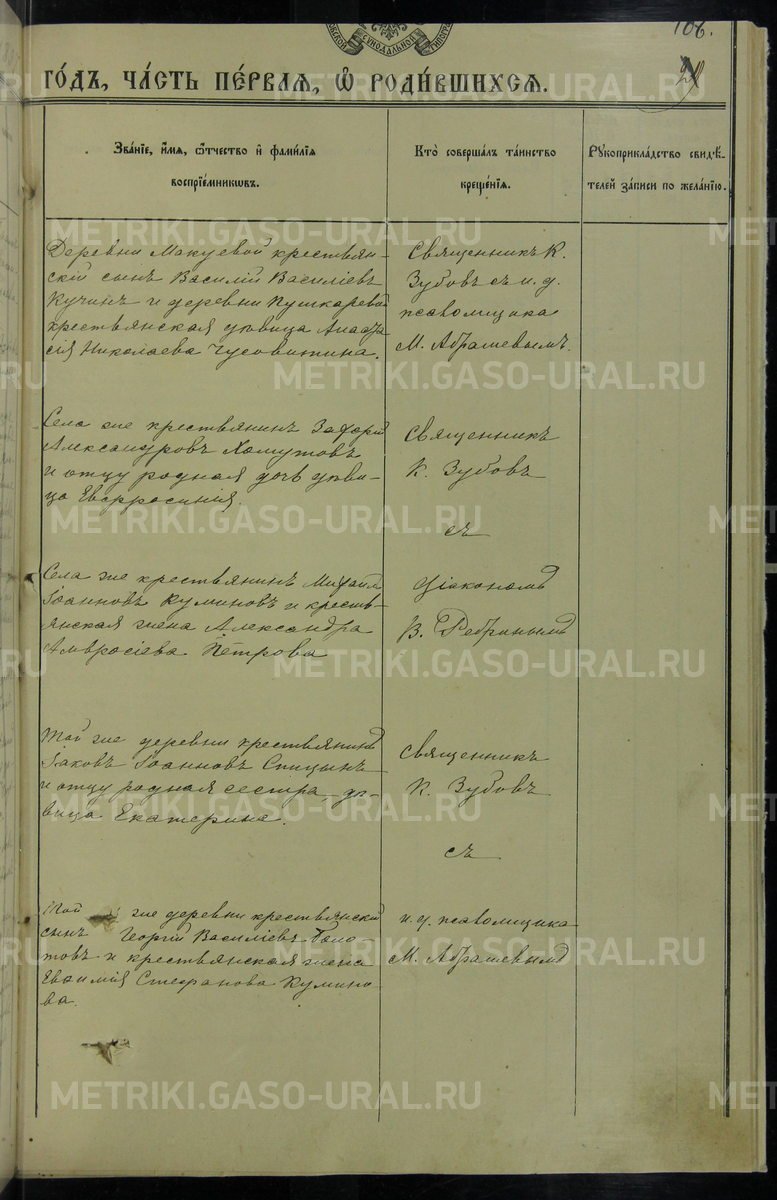 106.
СѴНОДАЛЬНОЙ
ГО́ДЪ, ЧА́СТЬ ПЕ́РВАѦ, Ѽ РОДИ́ВШИХСѦ.
Зва́нїе, и́мѧ, ѻ҆́тчество и҆ фами́лїѧ
воспрїе́мникѡвъ.
Кто̀ соверша́лъ та́инство
креще́нїѧ.
Рꙋкоприкла́дство свидѣ́-
телей за́писи по жела́нїю.
Деревни Макуевой крестьян-
скій сынъ Василій Василіевъ
Кучинъ и деревни Пушкаревой
крестьянская дѣвица Анаста-
сія Николаева Чусовитина.
Священникъ К.
Зубовъ съ и. д.
псаломщика
М. Абрашевымъ.
Села же крестьянинъ Захарій
Александровъ Хомутовъ
и отцу родная дочь дѣви-
ца Евфросинія.
Священникъ
К. Зубовъ
съ
Села же крестьянинъ Михаилъ
Іоанновъ Куминовъ и кресть-
янская жена Александра
Амвросіева Петрова
діакономъ
В. Ребринымъ
Той же деревни крестьянинъ
Іаковъ Іоанновъ Спицынъ
и отцу родная сестра дѣ-
вица Екатерина.
Священникъ
К. Зубовъ
съ
Той же деревни крестьянскій
сынъ Георгій Василіевъ Боло-
товъ и крестьянская жена
Евфимія Стефанова Кумино-
ва.
и. д. псаломщика
М. Абрашевымъ
METRIKI.GASO-URAL.RU